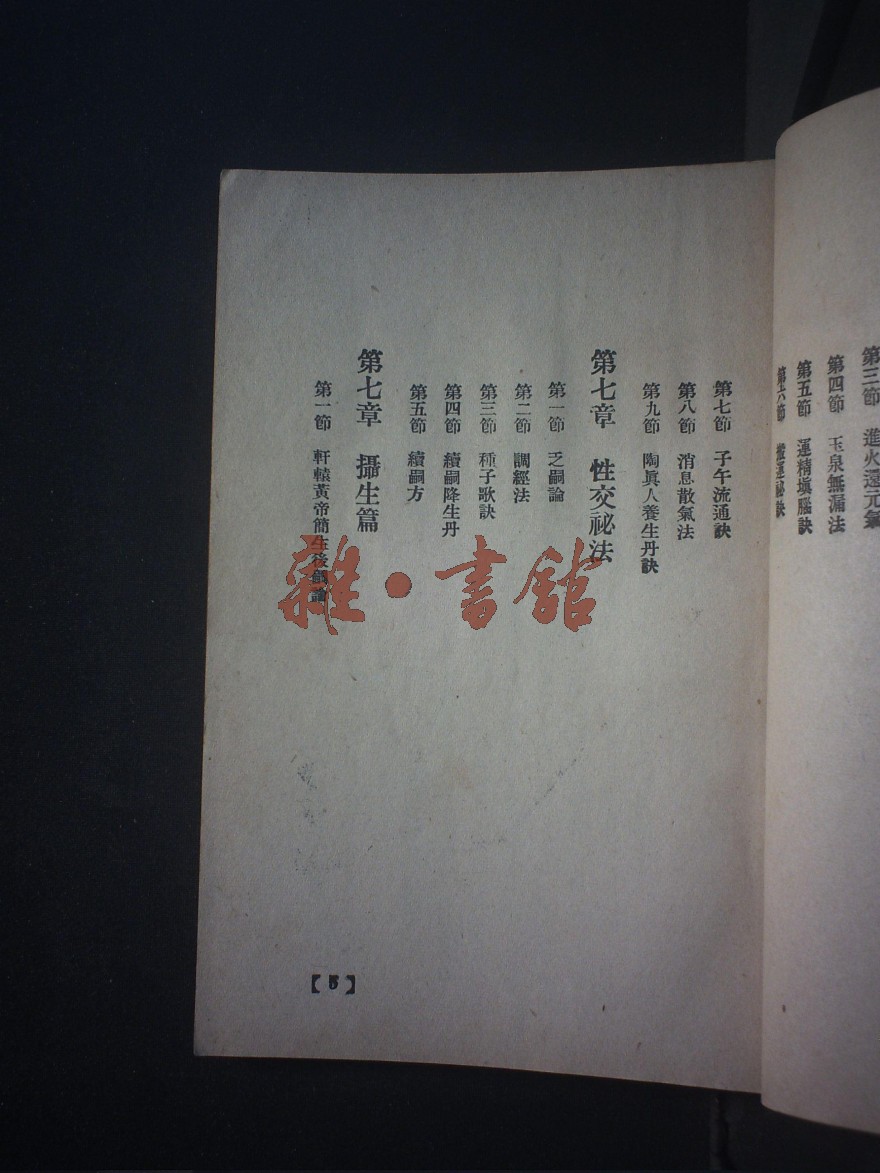 第三節　進火還元氣
第四節　玉泉無漏法
第五節　運精填腦訣
第六節　搬運祕訣
第七節　子午流通訣
第八節　消息散氣法
第九節　陶眞人養生丹訣
第七章　性交祕法
第一節　乏嗣論
第二節　調經法
第三節　種子歌訣
第四節　續嗣降生丹
第五節　續嗣方
第七章　攝生篇
第一節　軒轅黃帝簡生後嗣論
【5】
雜·書館